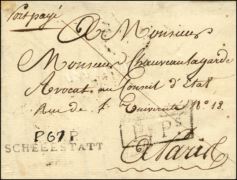 Port payé
A Monsieur
Monsieur Chauveau lagarde
Avocat au Conseil d'Etat
Rue de l'Université N° 13
P.P.
P.67.P
SCHELESTATT
A Paris